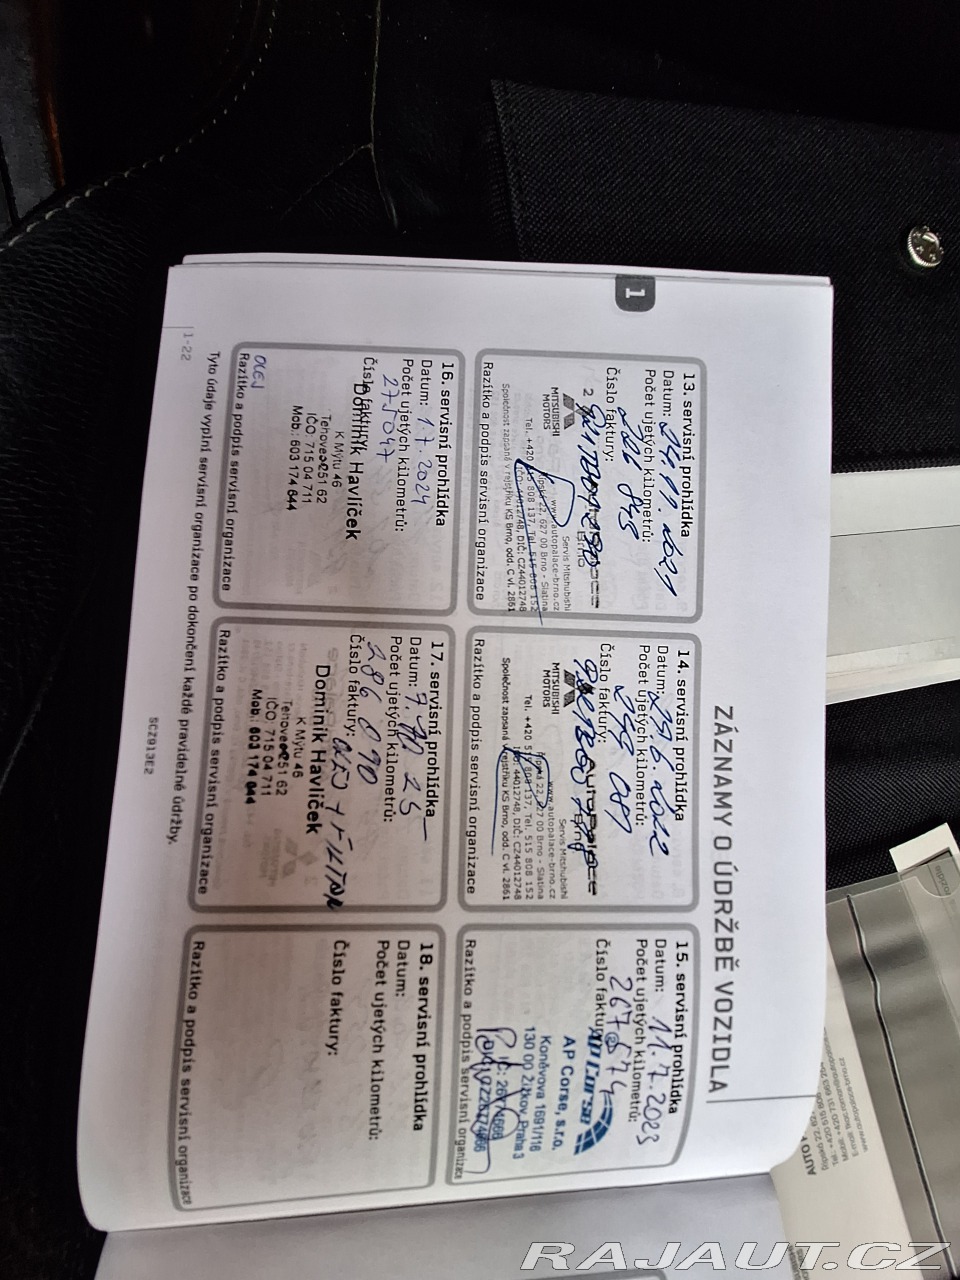 ZÁZNAMY O ÚDRŽBĚ VOZIDLA
1
13. servisní prohlídka
Datum: 24.11.2021
Počet ujetých kilometrů:
226 843
Číslo faktury:
2
MITSUBISHI
MOTORS
Servis Mitshubishi
www.autopalace-brno.cz
Řipská 22, 627 00 Brno - Slatina
IČO: 44012748, DIČ: CZ44012748
Tel. +420 515 808 137, Tel. 515 808 152
Společnost zapsaná v rejstříku KS Brno, odd. C vl. 2861
Razítko a podpis servisní organizace
14. servisní prohlídka
Datum: 29.6.2022
Počet ujetých kilometrů:
Číslo faktury:
MITSUBISHI
MOTORS
Servis Mitshubishi
www.autopalace-brno.cz
Řipská 22, 627 00 Brno - Slatina
IČO: 44012748, DIČ: CZ44012748
Tel. +420 515 808 137, Tel. 515 808 152
Společnost zapsaná v rejstříku KS Brno, odd. C vl. 2861
Razítko a podpis servisní organizace
15. servisní prohlídka
Datum: 11.7.2023
Počet ujetých kilometrů:
267574
Číslo faktury:
AP Corse
AP Corse, s.r.o.
Koněvova 1691/116
130 00 Žižkov, Praha 3
IČ: 26774666
DIČ: CZ26774666
Razítko a podpis servisní organizace
16. servisní prohlídka
Datum: 1.7.2024
Počet ujetých kilometrů:
275047
Číslo faktury:
Dominik Havlíček
K Mýtu 46
Tehovec 251 62
IČO: 715 04 711
Mob.: 603 174 644
OLEJ
Razítko a podpis servisní organizace
17. servisní prohlídka
Datum: 7.10.25
Počet ujetých kilometrů:
286 090
Číslo faktury:
OLEJ + FILTR
Dominik Havlíček
K Mýtu 46
Tehovec 251 62
IČO: 715 04 711
Mob.: 603 174 644
Razítko a podpis servisní organizace
18. servisní prohlídka
Datum:
Počet ujetých kilometrů:
Číslo faktury:
Razítko a podpis servisní organizace
Tyto údaje vyplní servisní organizace po dokončení každé pravidelné údržby.
1-22
SCZ913E2
RAJAUT.CZ